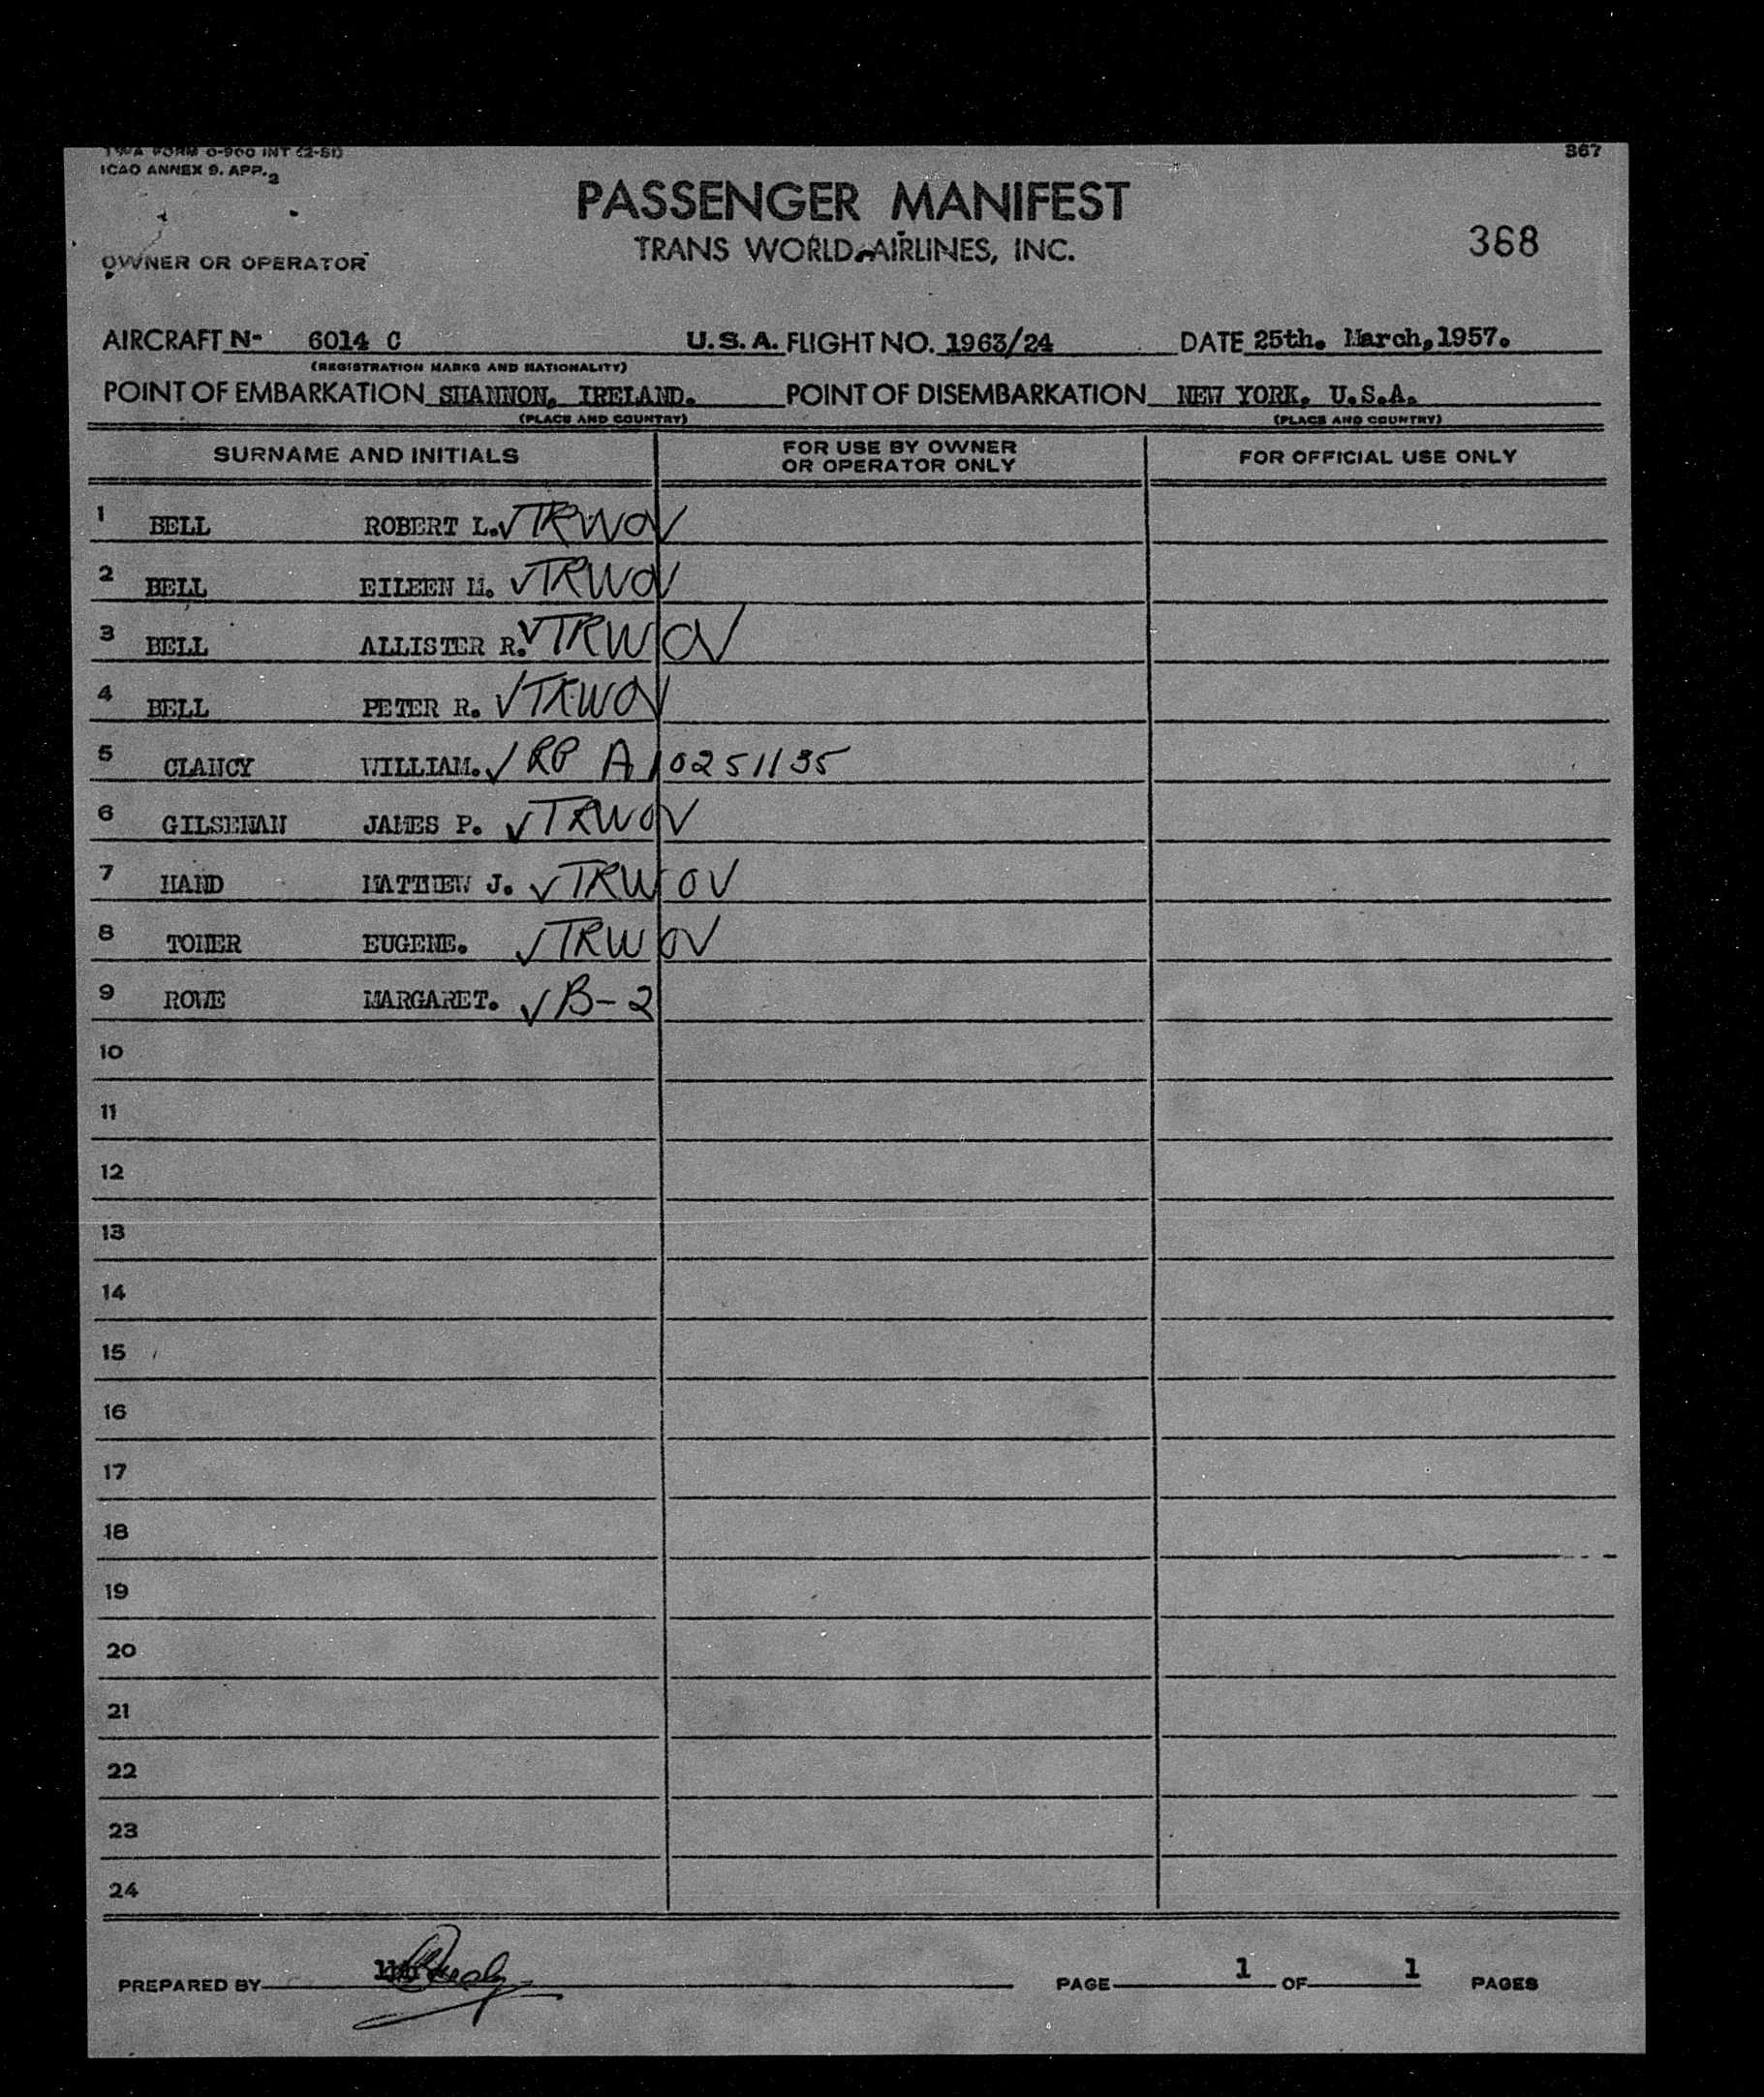 TWA FORM O-900 INT (2-51) 367
ICAO ANNEX 9. APP. 2
PASSENGER MANIFEST
TRANS WORLD AIRLINES, INC. 368
OWNER OR OPERATOR
AIRCRAFT N- 6014 C U.S.A. FLIGHT NO. 1963/24 DATE 25th. March, 1957.
(REGISTRATION MARKS AND NATIONALITY)
POINT OF EMBARKATION SHANNON, IRELAND. POINT OF DISEMBARKATION NEW YORK, U.S.A.
(PLACE AND COUNTRY) (PLACE AND COUNTRY)
SURNAME AND INITIALS FOR USE BY OWNER OR OPERATOR ONLY FOR OFFICIAL USE ONLY
1 BELL ROBERT L. ✓ TRWOV
2 BELL EILEEN M. ✓ TRWOV
3 BELL ALLISTER R. ✓ TRWOV
4 BELL PETER R. ✓ TRWOV
5 CLANCY WILLIAM. ✓ RP A10251135
6 GILSENAN JAMES P. ✓ TRWOV
7 HAND MATTHEW J. ✓ TRWOV
8 TONER EUGENE. ✓ TRWOV
9 ROWE MARGARET. ✓ B-2
10
11
12
13
14
15
16
17
18
19
20
21
22
23
24
PREPARED BY PAGE 1 OF 1 PAGES